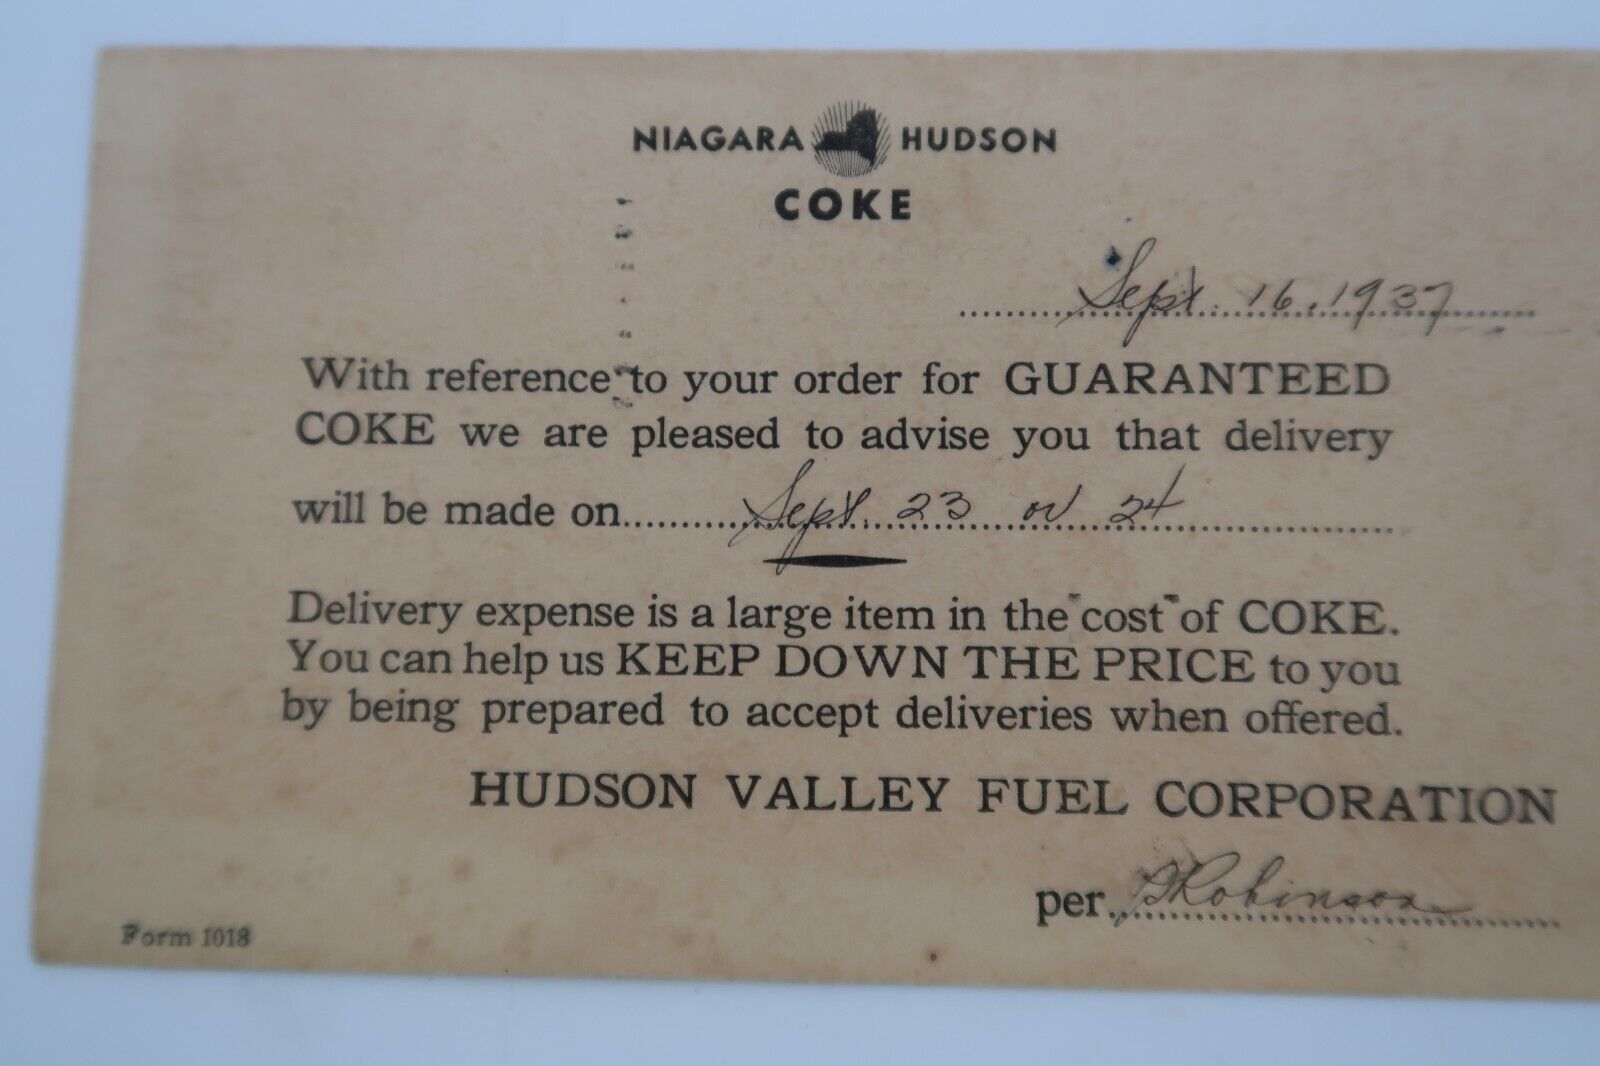 NIAGARA HUDSON
COKE
Sept 16, 1937
With reference to your order for GUARANTEED
COKE we are pleased to advise you that delivery
will be made on Sept 23 or 24
Delivery expense is a large item in the cost of COKE.
You can help us KEEP DOWN THE PRICE to you
by being prepared to accept deliveries when offered.
HUDSON VALLEY FUEL CORPORATION
per Robinson
Form 1018